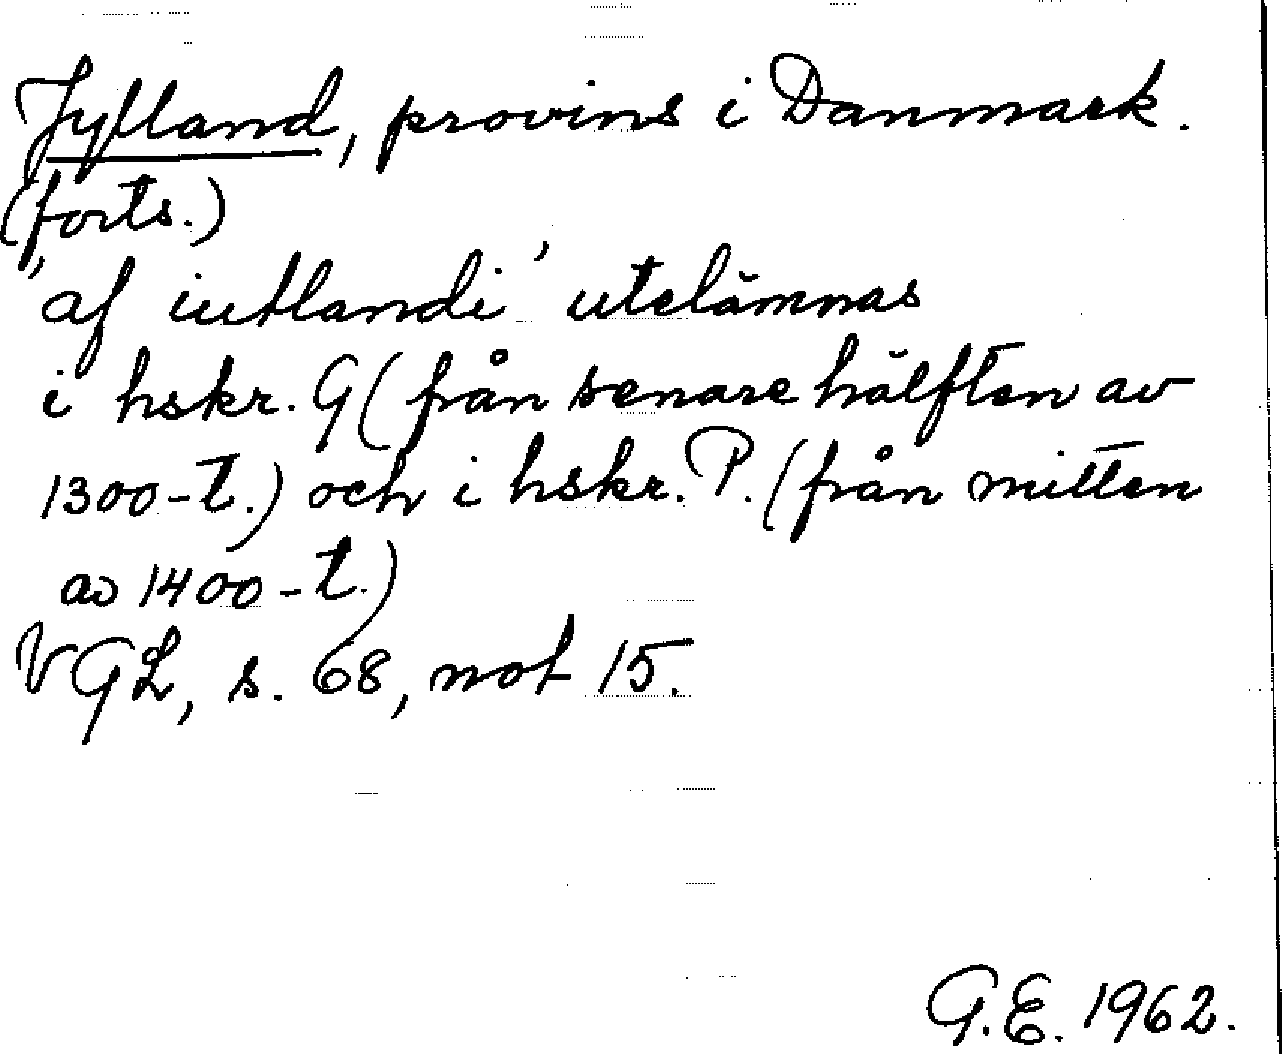 Jylland, provins i Danmark.
(forts.)
'af iutlandi' utelämnas
i hskr. G (från senare hälften av
1300-t.) och i hskr. P. (från mitten
av 1400-t.)
VGL, s. 68, not 15.
G.E. 1962.